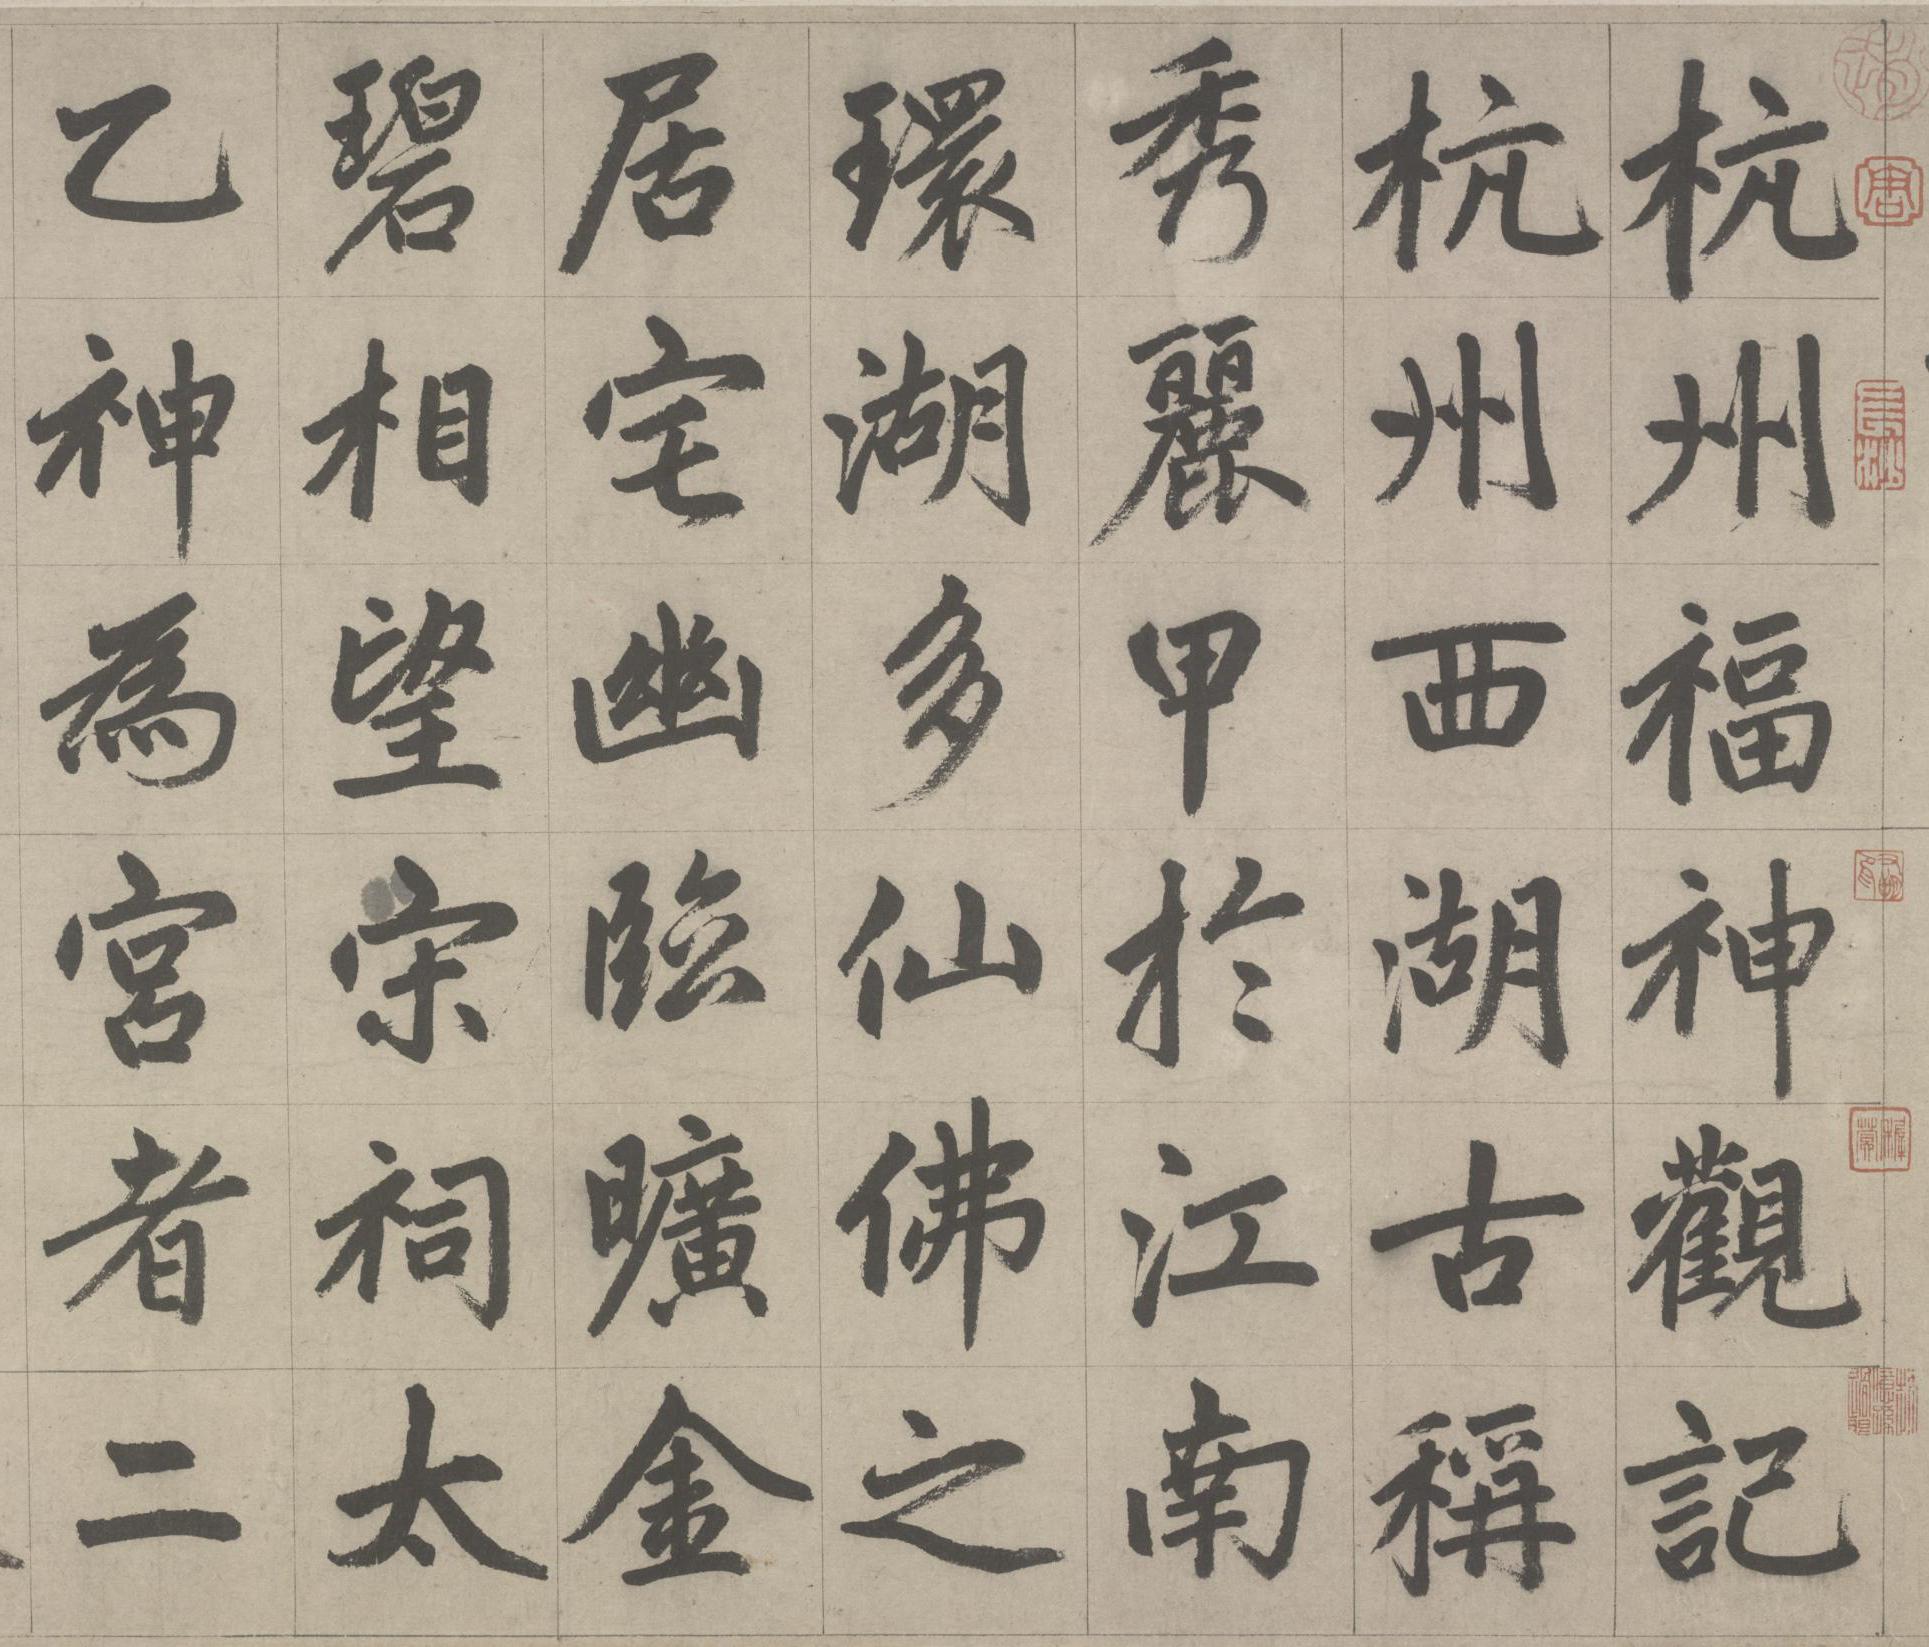 杭州福神觀記
杭州西湖古稱
秀麗甲於江南
環湖多仙佛之
居宅幽臨曠金
碧相望宗祠太
乙神為宮者二